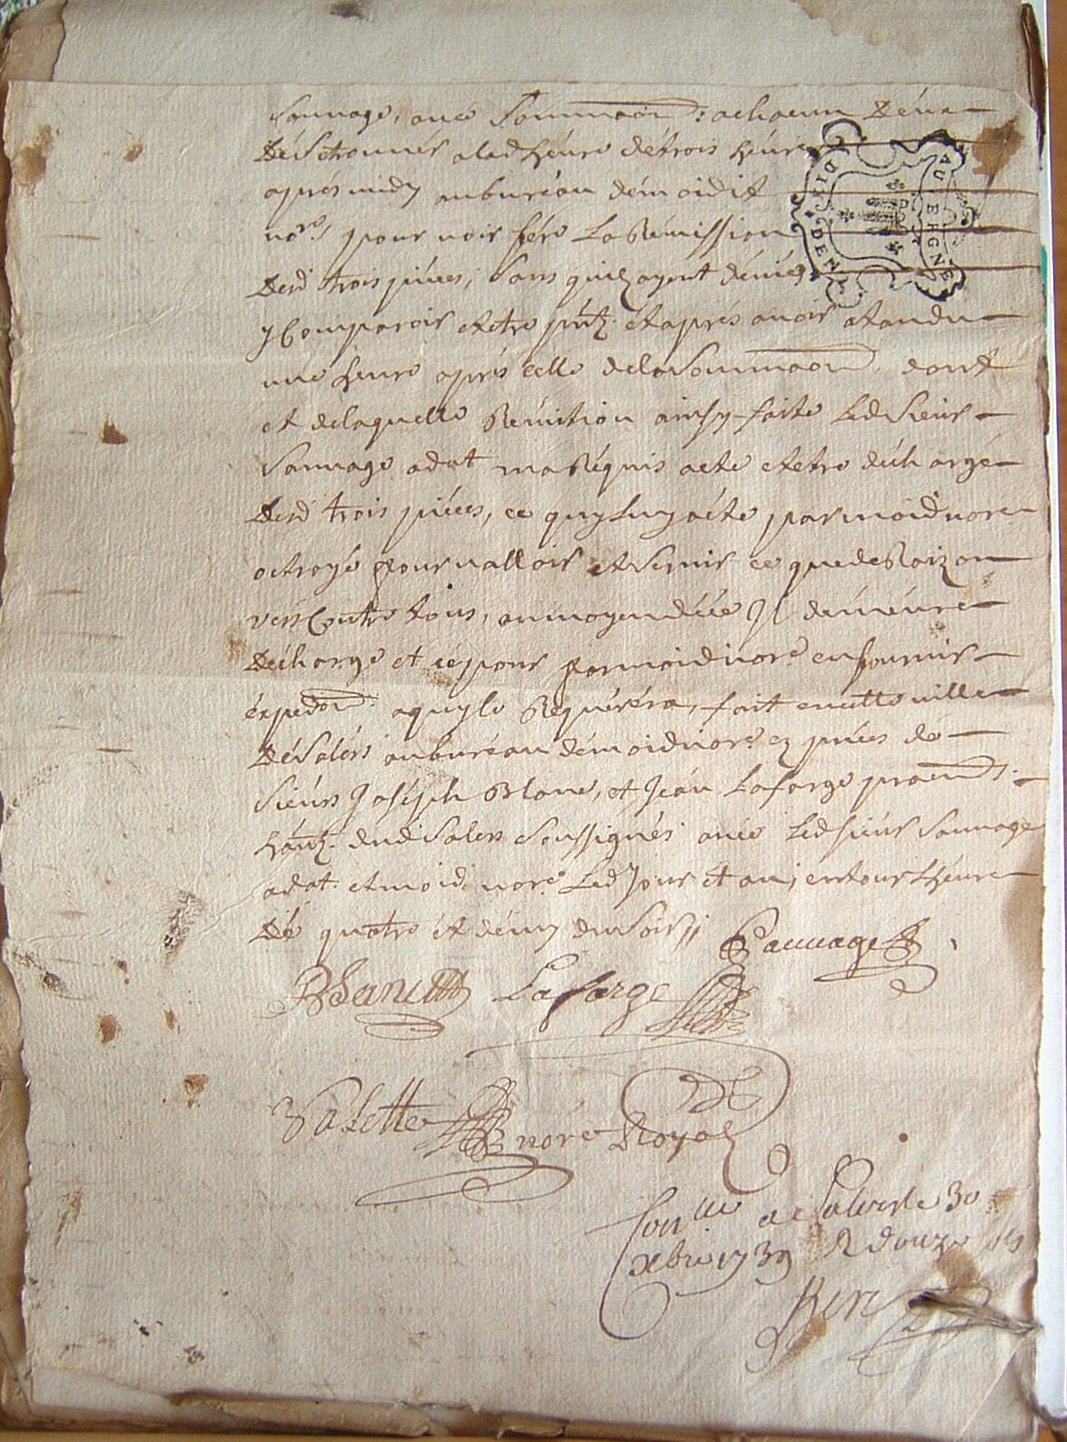 Sauvage, avec Sommaon : achacun Déux
Désétrouvér alad héure détrois héures
aprés midy aubureau démoidit
nore, pour voir fére La Rémission
Desd trois piéces, Sans quilz ayent déniés
y Comparoir etetre pntz. étaprés avoir atandu
une heure aprés celle delasommaon, dont
et delaquelle Rémition ainsy faite Led Sieur
Sauvage adat ma Réquis acte etetre décharge
Desd trois piéces, ce quy luy aété par moid nore
octroyé pour valloir et servir ce que de Raizon
vers Contre tous, aumoyen décé Il deméure
Décharge et cépour par moid nore en fournir
éxpedon. aquy le Réquéréra, fait encette ville
DéSalérs aubureau démoid nore ez pnces dé
Siéurs Joséph Blanc, et Jéan Lafarge praens.
hantz. dud Salers Soussignés avec Led siéur Sauvage
adat. et moid. nore Led Jour et an, entour L'héure
Dé quatre ét démy du Soir //
Sauvage
Blanc Lafarge
Valette nore Royal
AUVERGNE
DICGDEN
Conlle a Salers le 30
xbre 1739 R douze sls